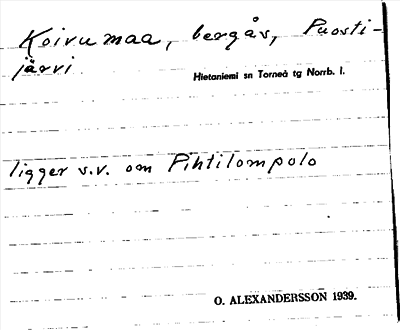 Koivumaa, bergås, Puosti-
järvi
Hietaniemi sn Torneå tg Norrb. l.
ligger s.v. om Pihtilompolo
O. ALEXANDERSSON 1939.